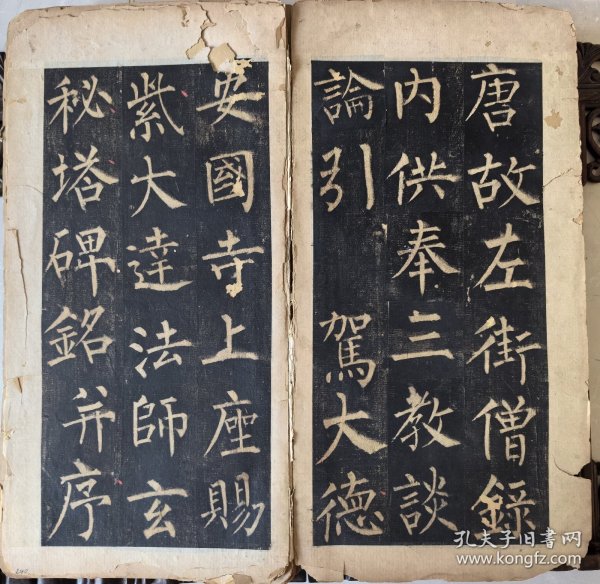 唐故左街僧錄
内供奉三教談
論引 駕大德
安國寺上座賜
紫大達法師玄
秘塔碑銘并序
孔夫子旧书网
www.kongfz.com